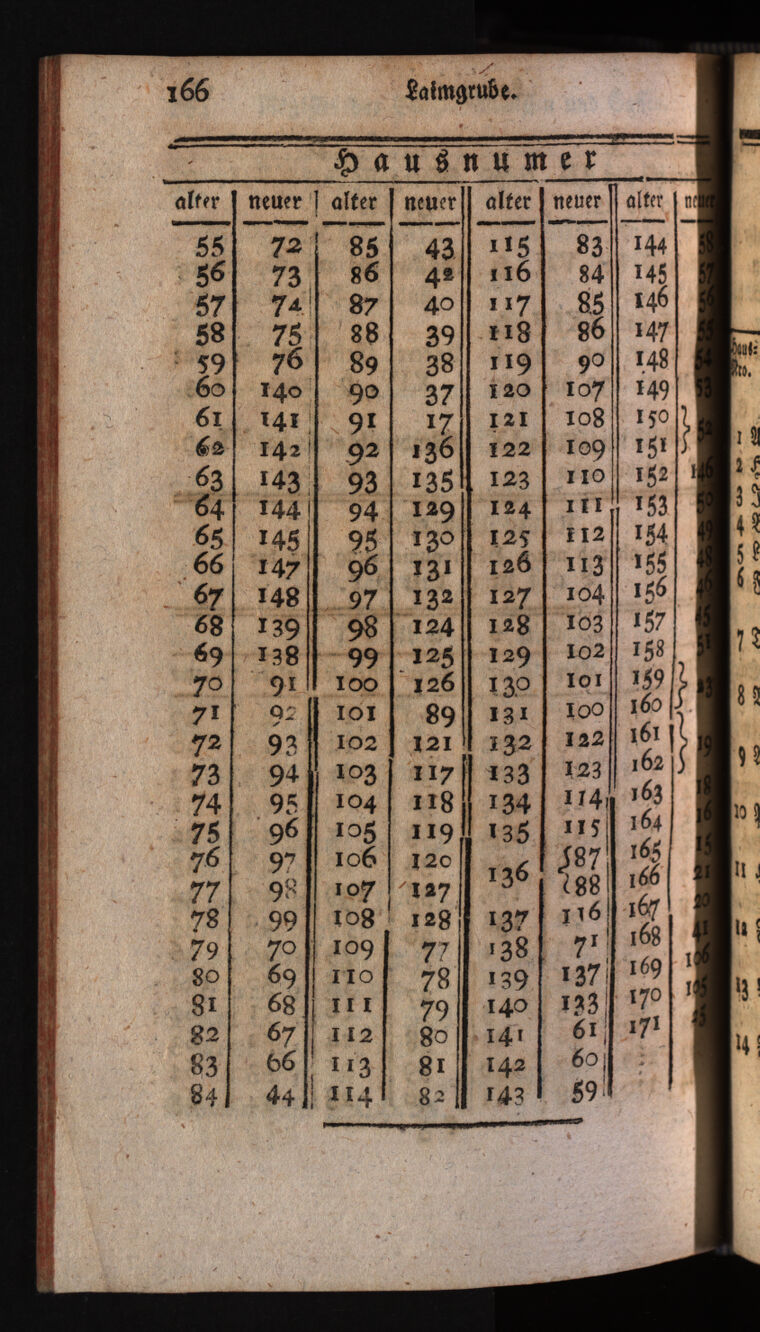 166 Laimgrube.
Hausnumer
alter neuer alter neuer alter neuer alter
55 72 85 43 115 83 144 58
56 73 86 42 116 84 145 57
57 74 87 40 117 85 146 56
58 75 88 39 118 86 147 55
59 76 89 38 119 90 148 54
60 140 90 37 120 107 149 53
61 141 91 17 121 108 150 } 52
62 142 92 136 122 109 151
63 143 93 135 123 110 152 146
64 144 94 129 124 111 153 50
65 145 95 130 125 112 154 49
66 147 96 131 126 113 155 48
67 148 97 132 127 104 156 46
68 139 98 124 128 103 157 45
69 138 99 125 129 102 158 51
70 91 100 126 130 101 159 }
71 92 101 89 131 100 160
72 93 102 121 132 122 161 } 19
73 94 103 117 133 123 162
74 95 104 118 134 114 163 18
75 96 105 119 135 115 164 16
76 97 106 120 136 { 87 165 15
77 98 107 127 88 166 21
78 99 108 128 137 116 167 20
79 70 109 77 138 71 168 41
80 69 110 78 139 137 169 106
81 68 111 79 140 133 170 105
82 67 112 80 141 61 171
83 66 113 81 142 60
84 44 114 82 143 59
Haus=
Nro.
1
2
3
4
5
6
7
8
9
10
11
12
13
14